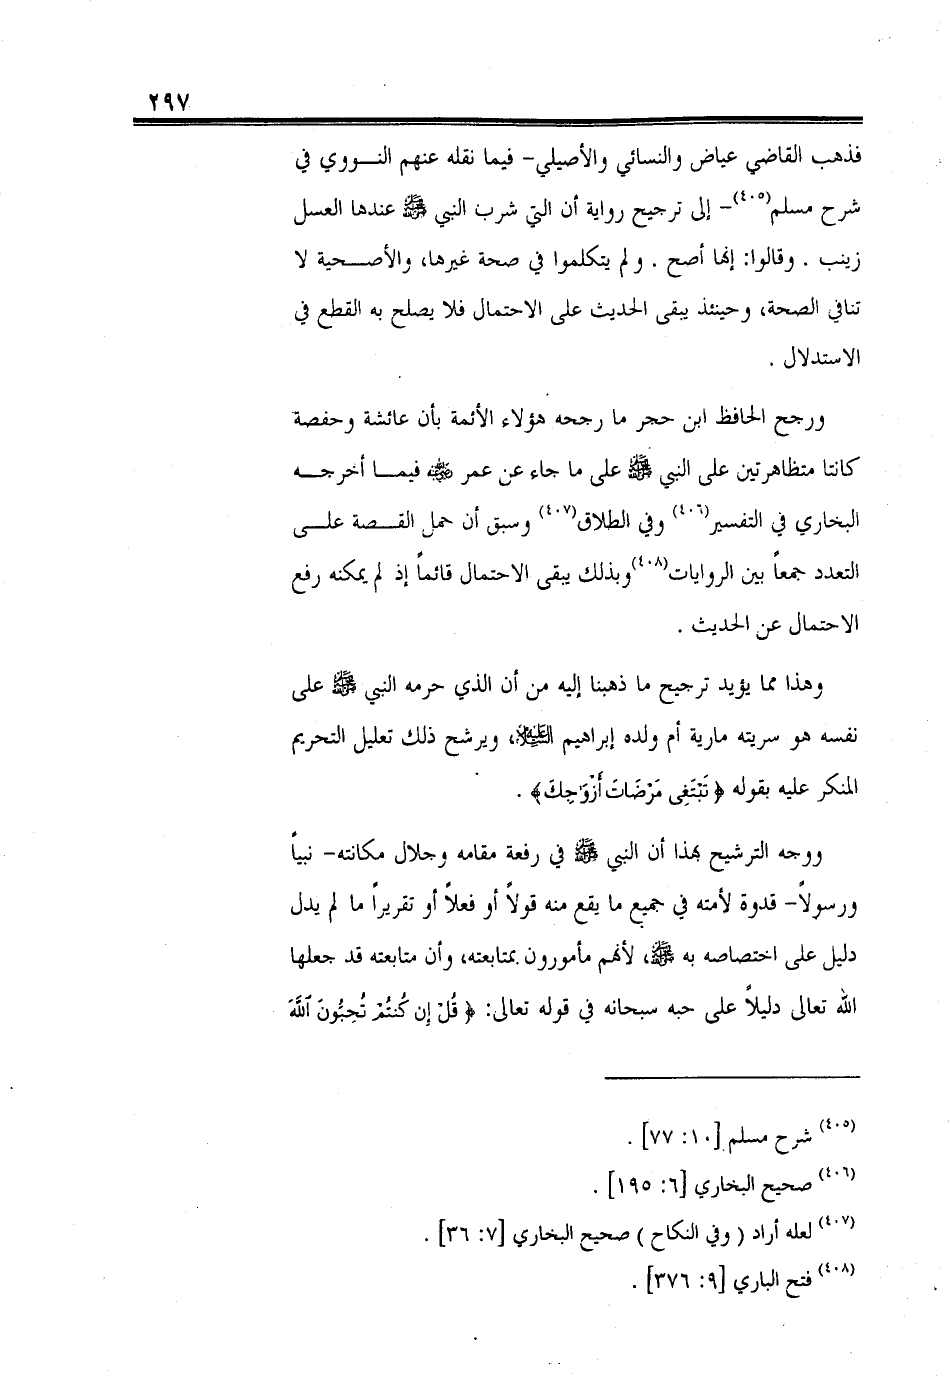 ٢٩٧
فذهب القاضي عياض والنسائي والأصيلي- فيما نقله عنهم النـــووي في
شرح مسلم(٤٠٥)- إلى ترجيح رواية أن التي شرب النبي ﷺ عندها العسل
زينب . وقالوا: إنها أصح . و لم يتكلموا في صحة غيرها، والأصـــحية لا
تنافي الصحة، وحينئذ يبقى الحديث على الاحتمال فلا يصلح به القطع في
الاستدلال .
ورجح الحافظ ابن حجر ما رجحه هؤلاء الأئمة بأن عائشة وحفصة
كانتا متظاهرتين على النبي ﷺ على ما جاء عن عمر ﷺ فيمـــا أخرجـــه
البخاري في التفسير(٤٠٦) وفي الطلاق(٤٠٧) وسبق أن حمل القـــصة علـــى
التعدد جمعاً بين الروايات(٤٠٨)وبذلك يبقى الاحتمال قائماً إذ لم يمكنه رفع
الاحتمال عن الحديث .
وهذا مما يؤيد ترجيح ما ذهبنا إليه من أن الذي حرمه النبي ﷺ على
نفسه هو سريته مارية أم ولده إبراهيم العَلَيْهِ السَّلام، ويرشح ذلك تعليل التحريم
المنكر عليه بقوله ﴿ تَبْتَغِى مَرْضَاتَ أَزْوَٰجِكَ﴾ .
ووجه الترشيح بهذا أن النبي ﷺ في رفعة مقامه وجلال مكانته- نبياً
ورسولاً- قدوة لأمته في جميع ما يقع منه قولاً أو فعلاً أو تقريراً ما لم يدل
دليل على اختصاصه به ﷺ، لأنهم مأمورون بمتابعته، وأن متابعته قد جعلها
الله تعالى دليلاً على حبه سبحانه في قوله تعالى: ﴿ قُلْ إِن كُنتُمْ تُحِبُّونَ ٱللَّهَ
(٤٠٥) شرح مسلم [١٠: ٧٧] .
(٤٠٦) صحيح البخاري [٦: ١٩٥] .
(٤٠٧) لعله أراد ( وفي النكاح ) صحيح البخاري [٧: ٣٦] .
(٤٠٨) فتح الباري [٩: ٣٧٦] .